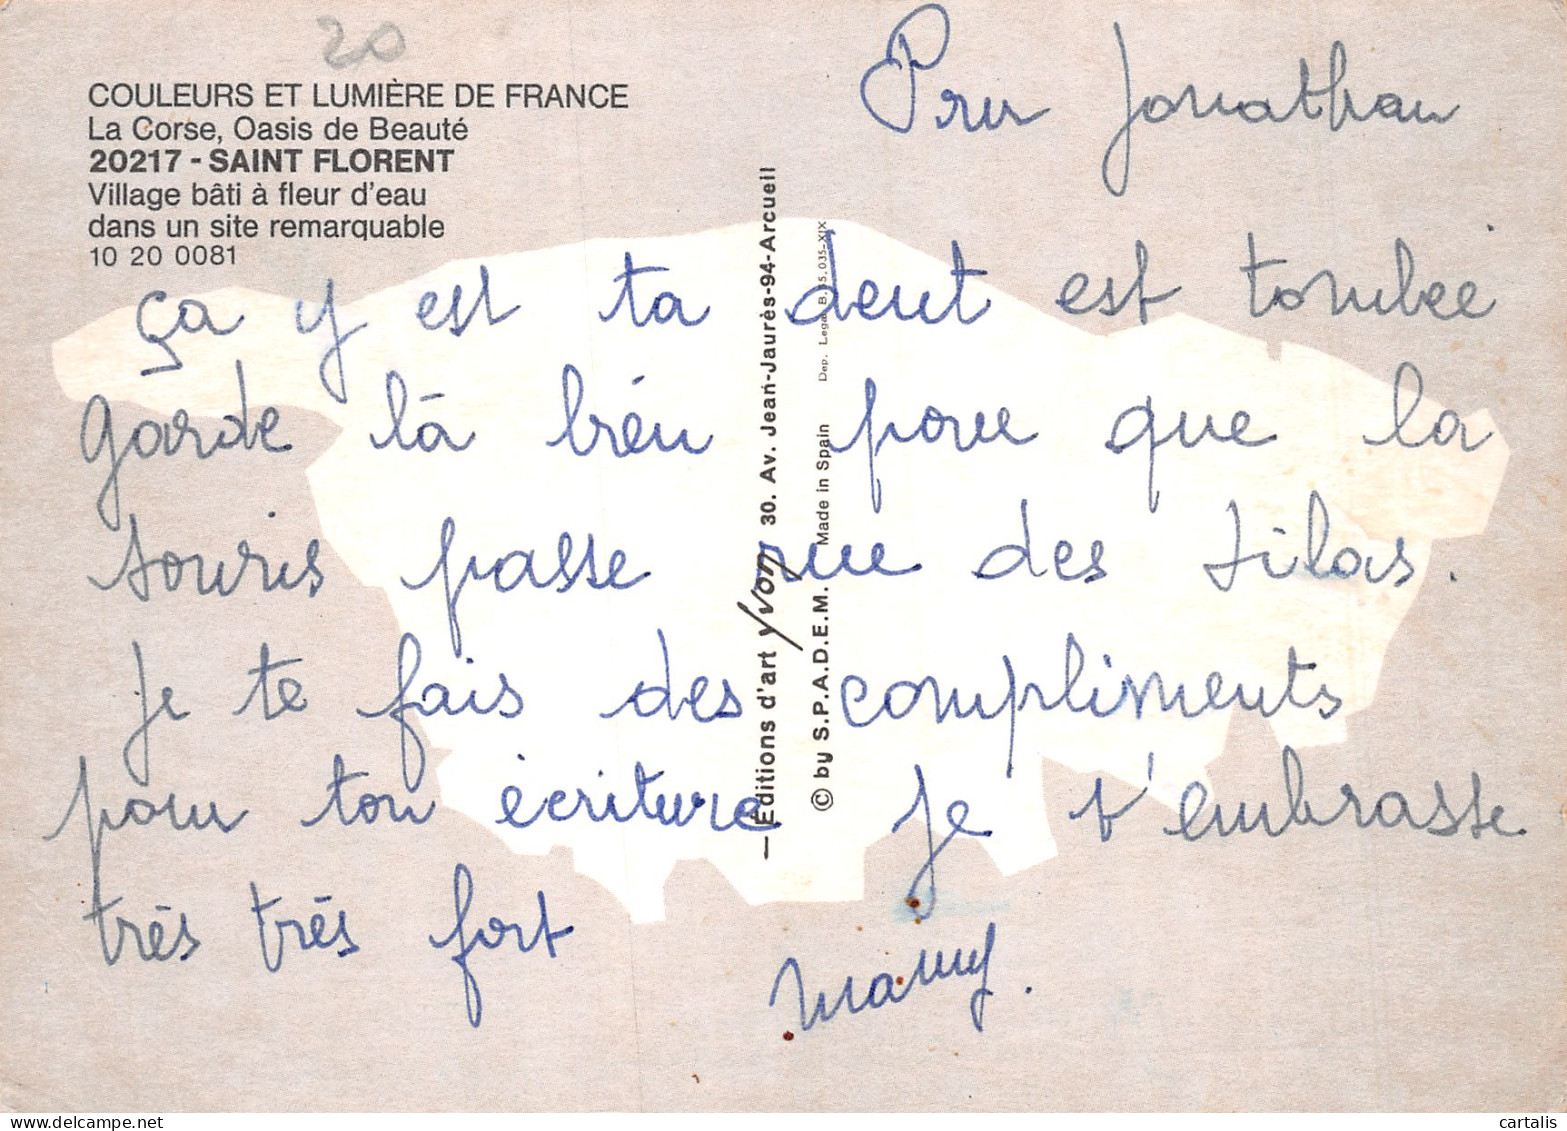 20
COULEURS ET LUMIÈRE DE FRANCE
La Corse, Oasis de Beauté
20217 - SAINT FLORENT
Village bâti à fleur d'eau
dans un site remarquable
10 20 0081
Pour Jonathan
ça y est ta dent est tombée
garde là bien pour que la
souris passe rue des lilas.
Je te fais des compliments
pour ton écriture Je t'embrasse
très très fort
mamy.
Éditions d'art yvon 30. Av. Jean-Jaurès-94-Arcueil
© by S.P.A.D.E.M. Made in Spain Dep. Legal B.
cartalis
delcampe.net